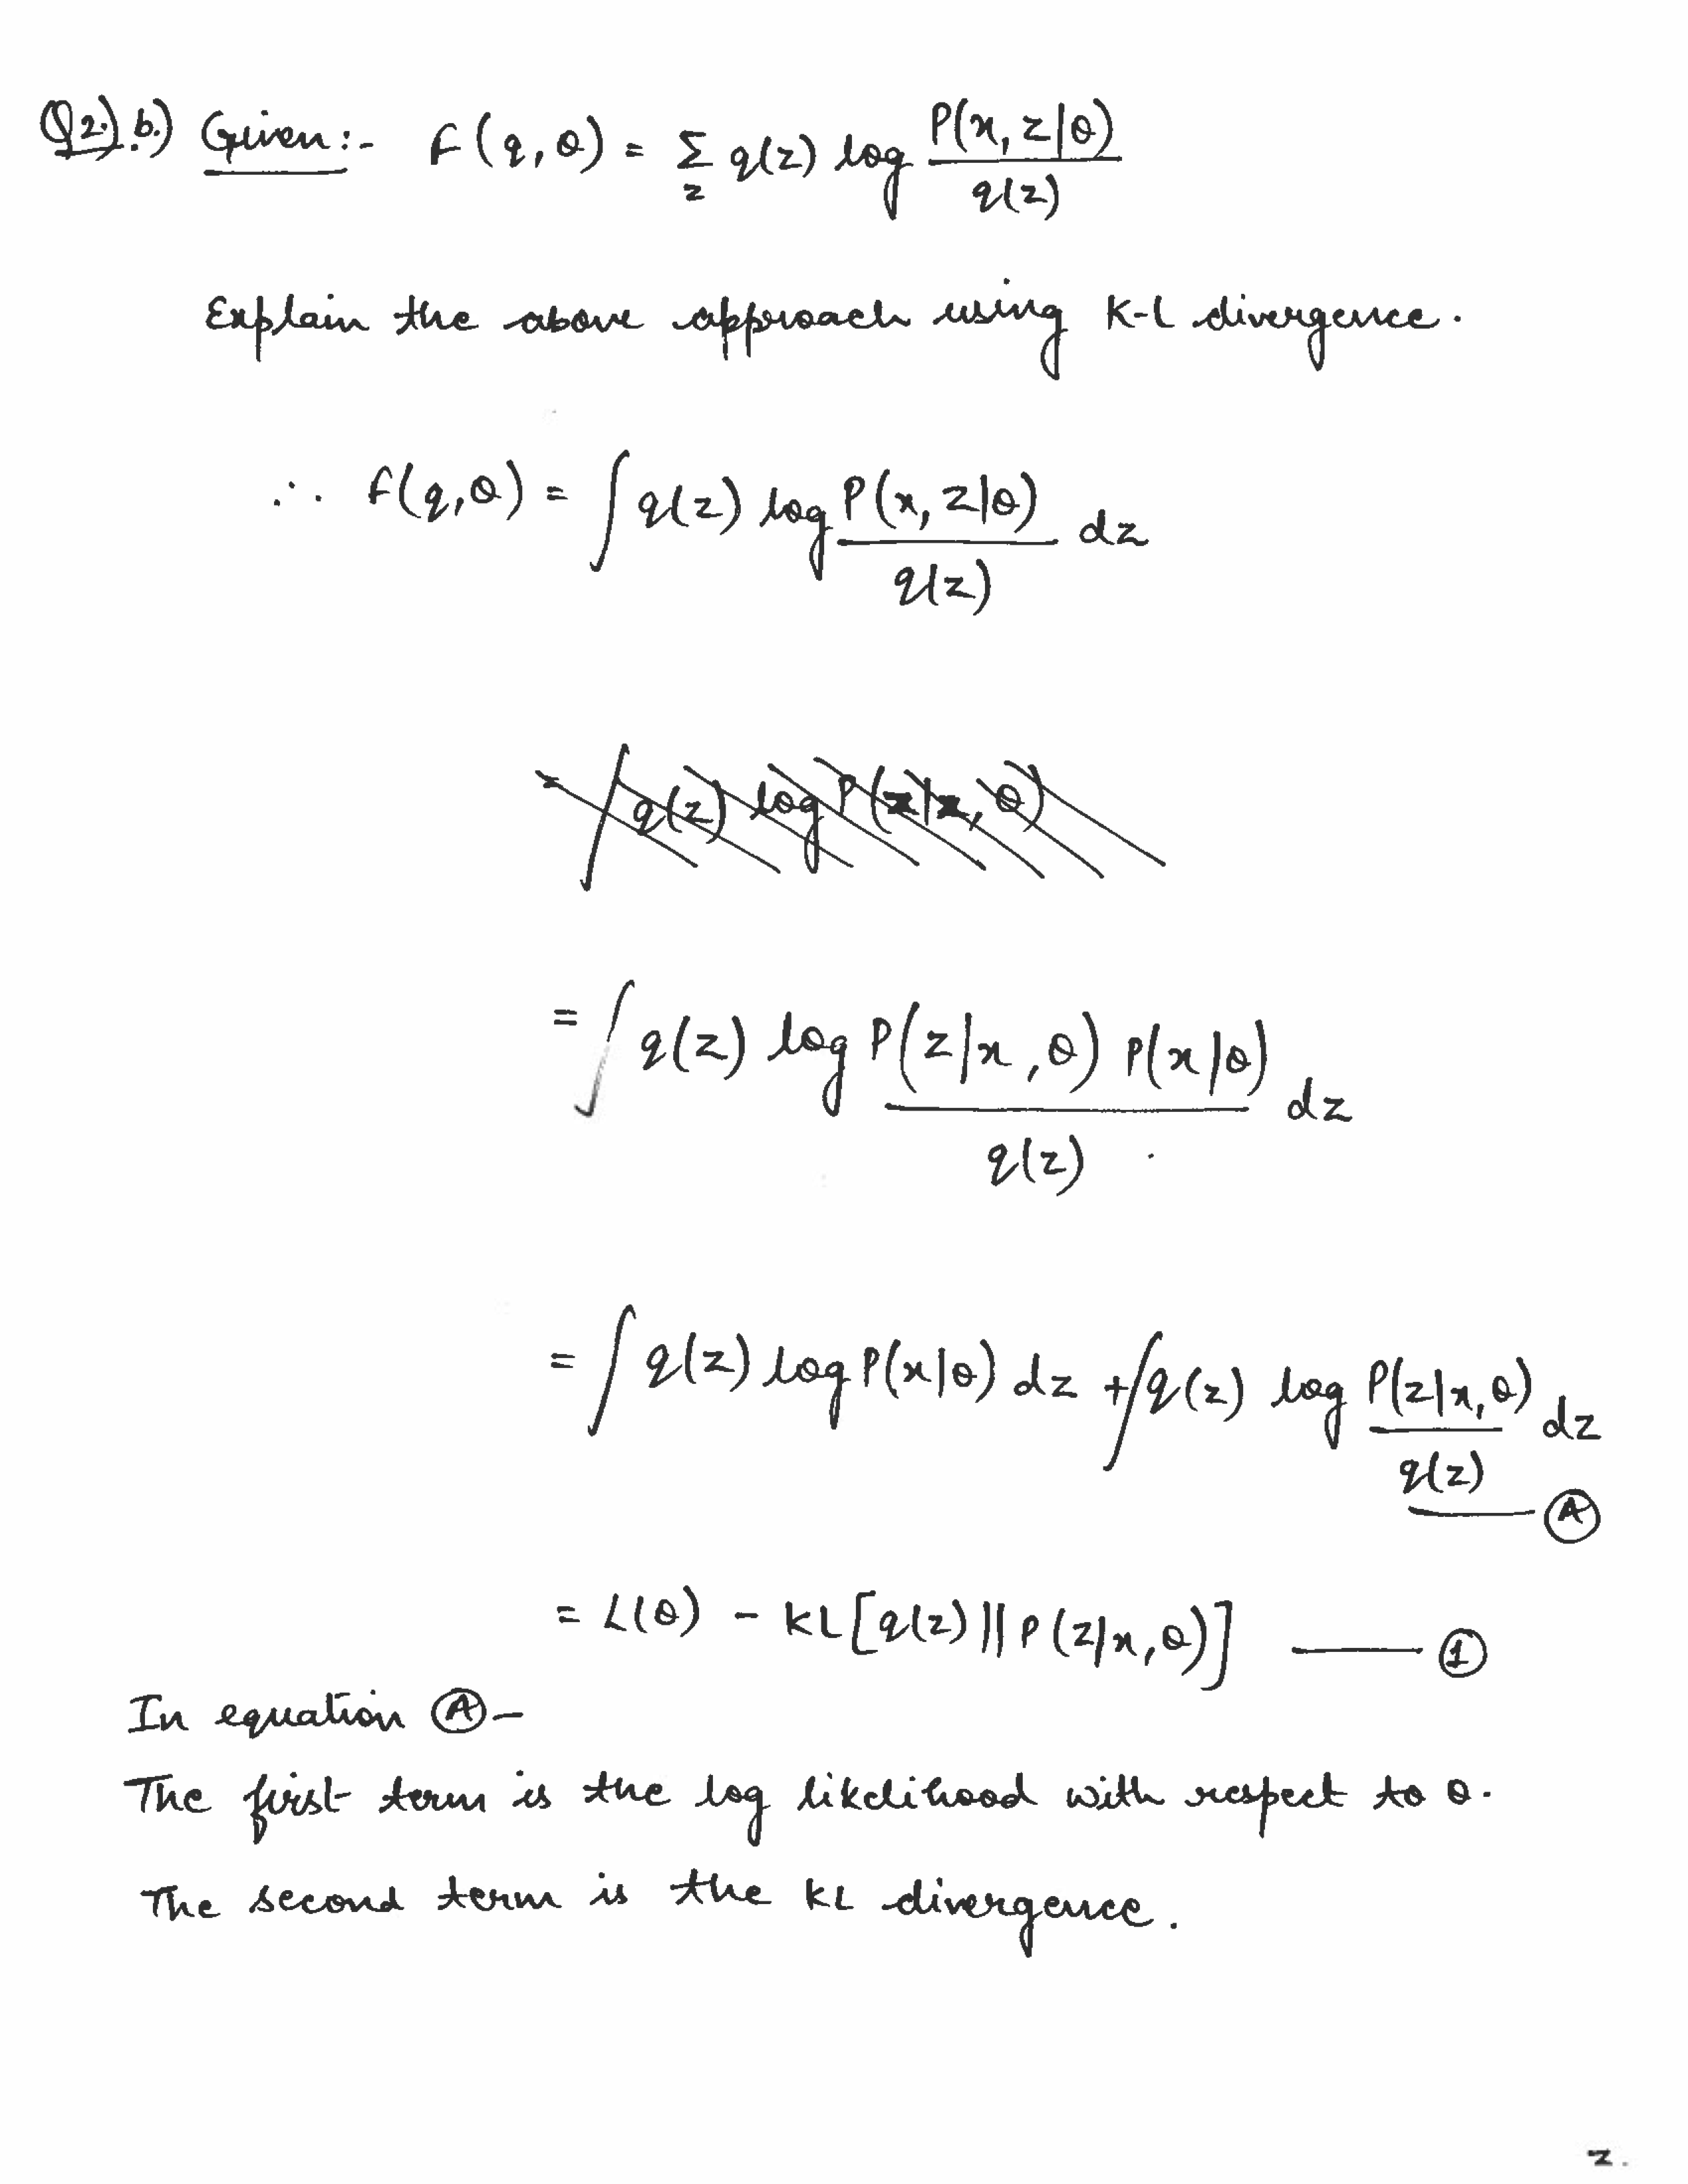 Q2.) b.) Given:- F(q, θ) = Σ_z q(z) log P(x, z|θ) / q(z)
Explain the above approach using K-L divergence.
∴ F(q, θ) = ∫ q(z) log P(x, z|θ) / q(z) dz
= ∫ q(z) log P(z|x, θ)
= ∫ q(z) log P(z|x, θ) P(x|θ) / q(z) dz
= ∫ q(z) log P(x|θ) dz + ∫ q(z) log P(z|x, θ) / q(z) dz —— Ⓐ
= L(θ) - KL[q(z) || P(z|x, θ)] —— ①
In equation Ⓐ -
The first term is the log likelihood with respect to θ.
The second term is the KL divergence.
2.